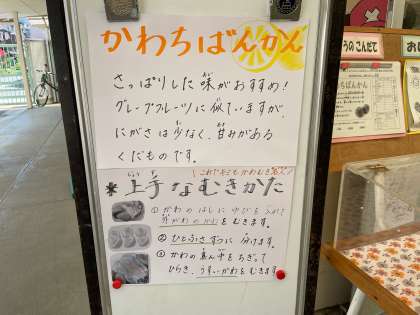 かわちばんかん
さっぱりした味がおすすめ!
グレープフルーツに似ていますが、
にがさは少なく、甘みがある
くだものです。
これできみもかわむき名人
*上手なむきかた
じょうず
①かわのはしにゆびを入れて
外がわのかわをむきます。
②ひとふさずつに分けます。
③かわの真ん中をちぎって
ひらき、うすいかわをむきます。
うのこんだて
ちばんかん